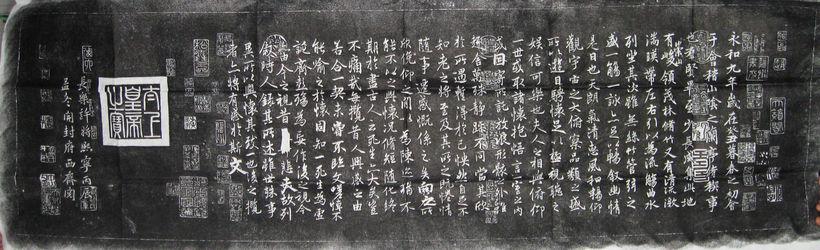 永和九年歲在癸丑暮春之初會
于會稽山陰之蘭亭脩禊事
也羣賢畢至少長咸集此地
有崇山峻領茂林脩竹又有清流激
湍暎帶左右引以為流觴曲水
列坐其次雖無絲竹管弦之
盛一觴一詠亦足以暢敘幽情
是日也天朗氣清惠風和暢仰
觀宇宙之大俯察品類之盛
所以遊目騁懷足以極視聽之
娛信可樂也夫人之相與俯仰
一世或取諸懷抱悟言一室之內
或因寄所託放浪形骸之外雖
趣舍萬殊靜躁不同當其欣
於所遇暫得於己快然自足不
知老之將至及其所之既惓情
隨事遷感慨係之矣向之所
欣俛仰之閒以為陳迹猶不
能不以之興懷況脩短隨化終
期於盡古人云死生亦大矣豈
不痛哉每攬昔人興感之由
若合一契未嘗不臨文嗟悼不
能喻之於懷固知一死生為虛
誕齊彭殤為妄作後之視今
亦由今之視昔悲夫故列
敘時人錄其所述雖世殊事
異所以興懷其致一也後之攬
者亦將有感於斯文
太上皇帝之寶
長樂許將熙寧丙辰
孟冬開封府西齋閱